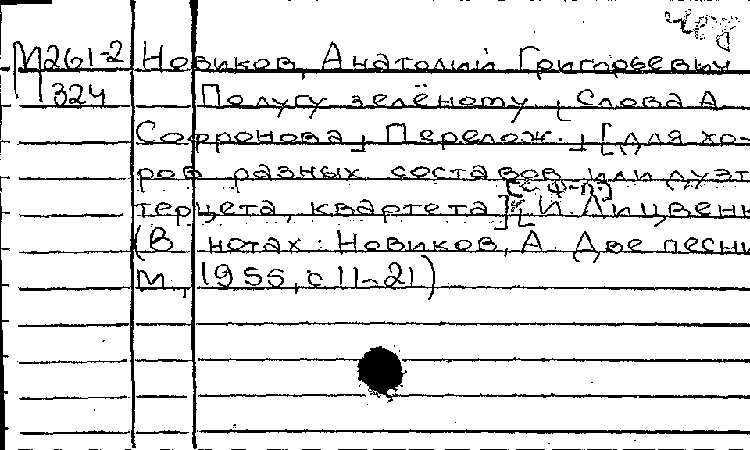 М261-2 Новиков, Анатолий Григорьевич
324 Полугу зелёному [Слова А
Софронова] Перелож. [для хо-
ров разных составов или дуэт
терцета, квартета] [с ф-п.] [И. Лицвенк
(В нотах: Новиков, А. Две песни
М., 1955, с 11-21)